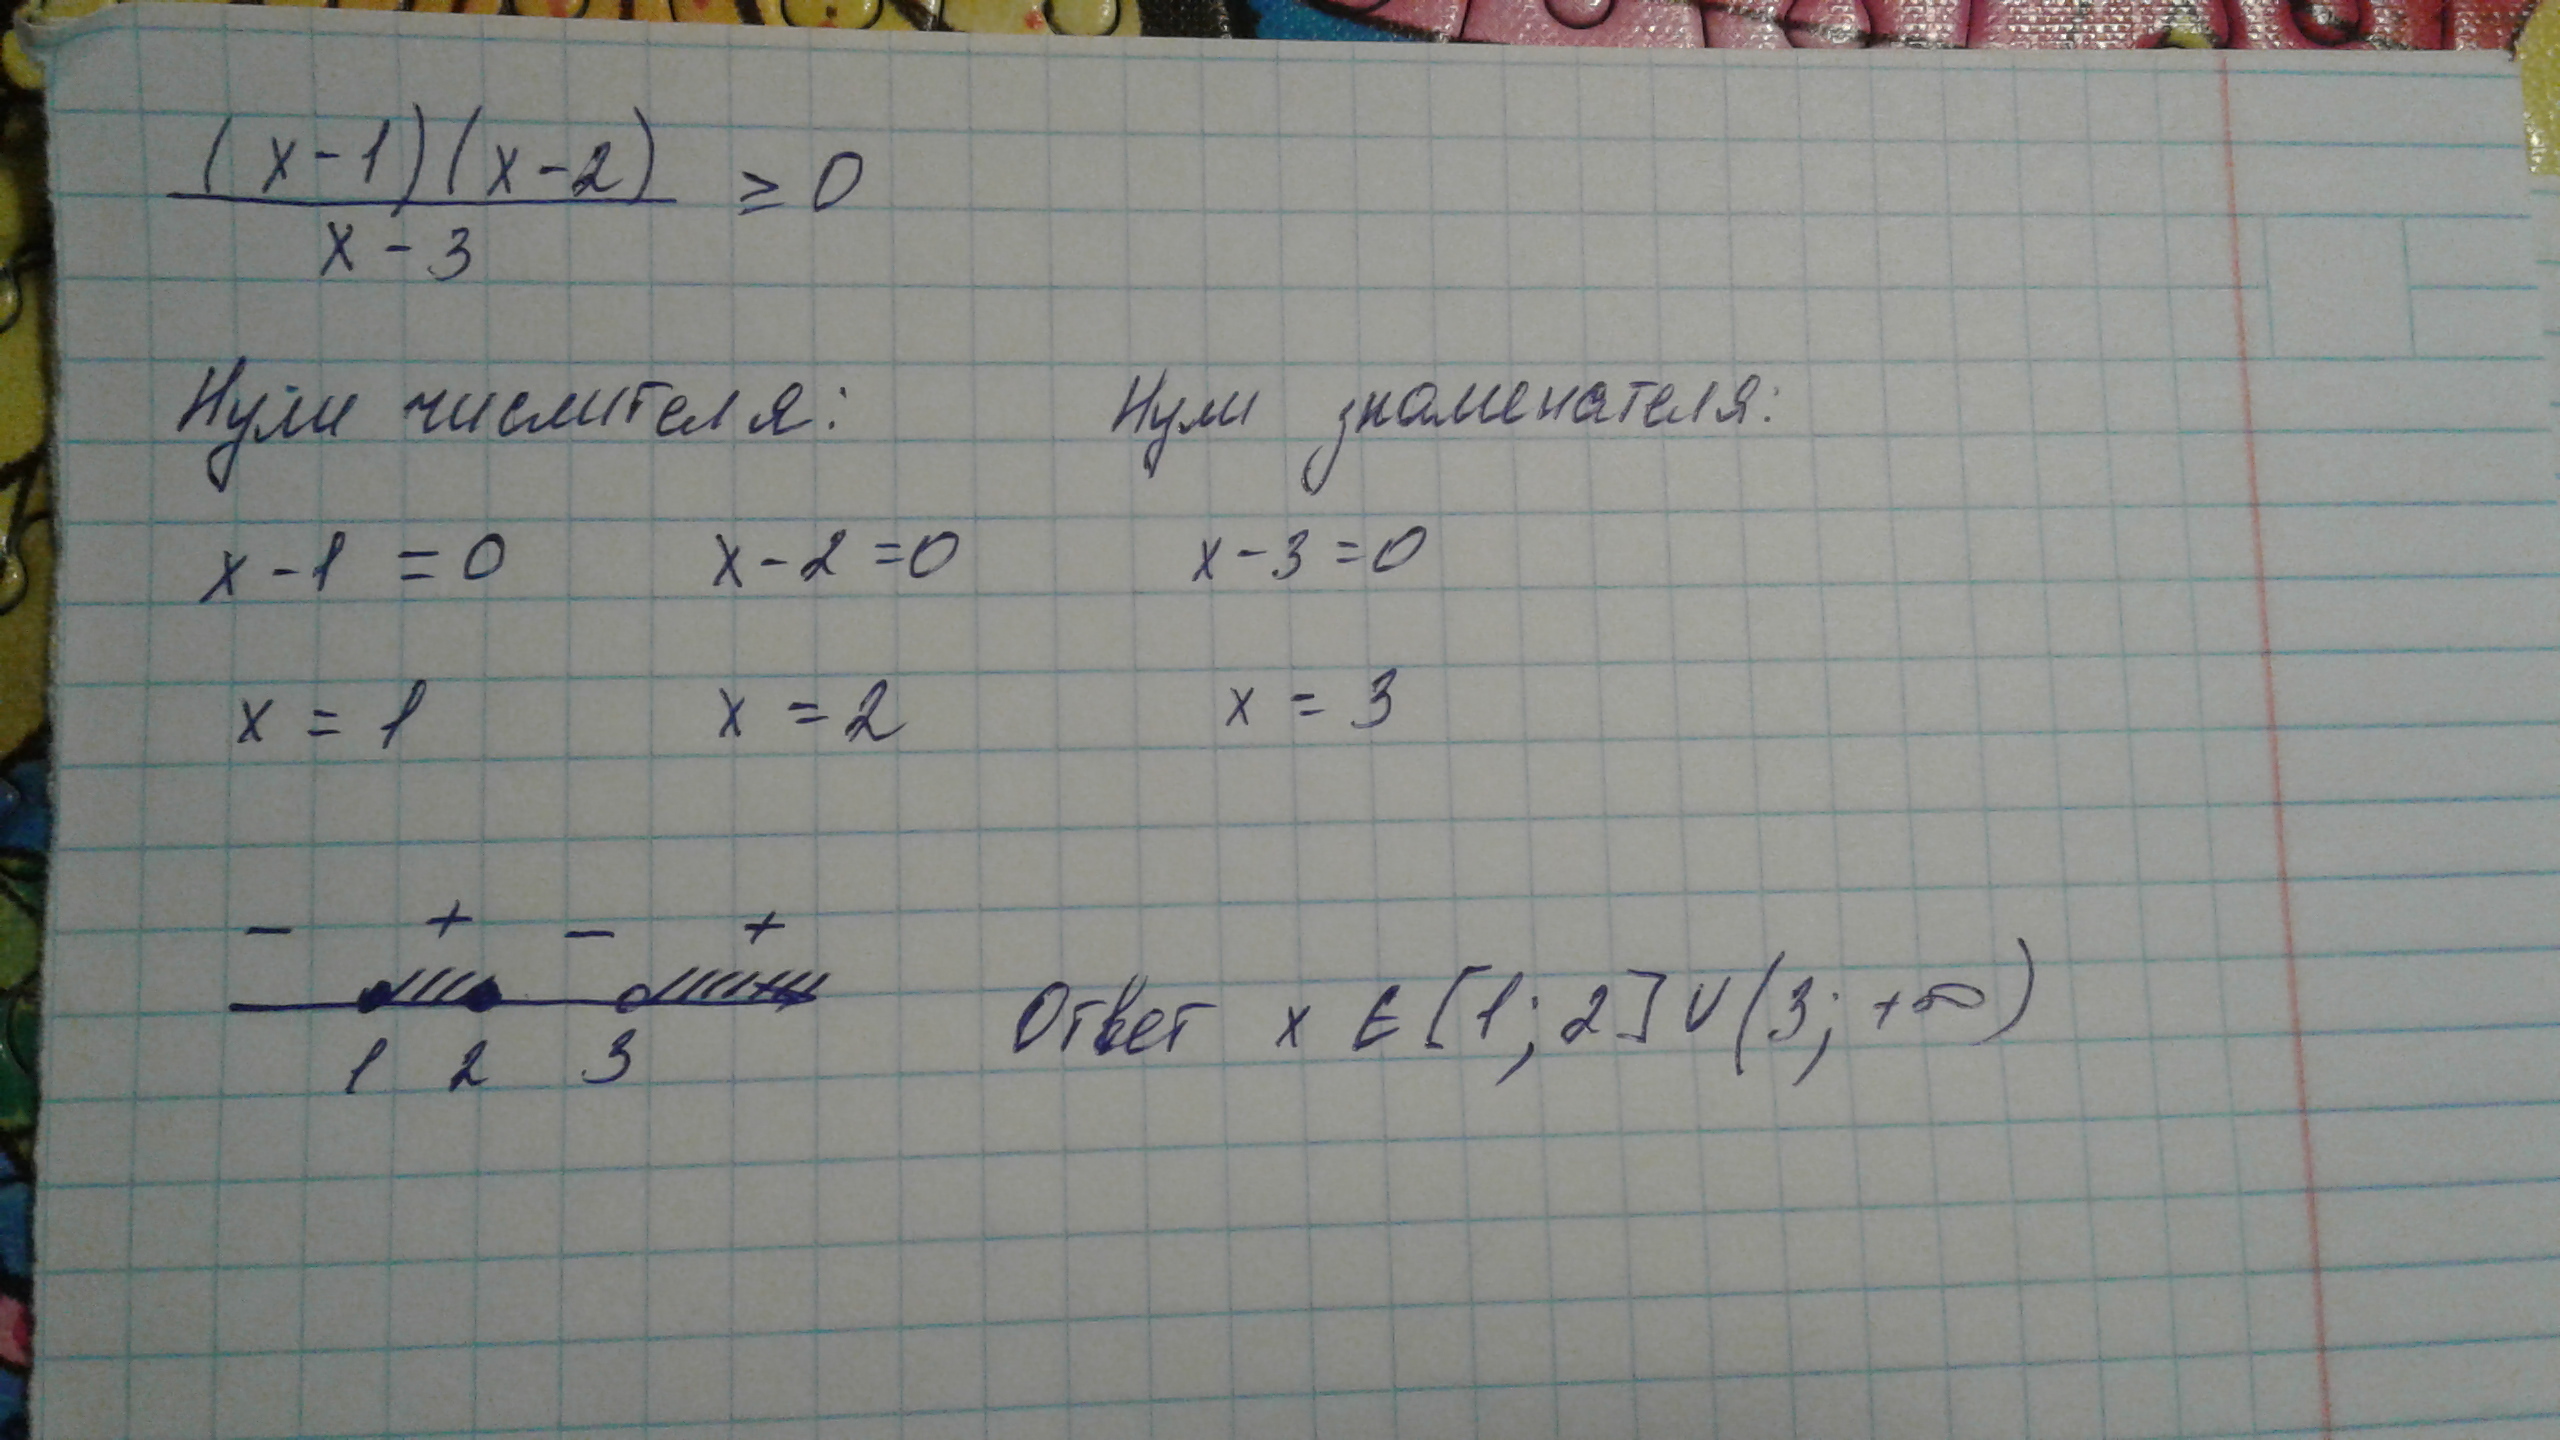 (x-1)(x-2)
x-3
≥ 0
Нули числителя: Нули знаменателя:
x-1 =0 x-2=0 x-3=0
x = 1 x = 2 x = 3
- + - +
1 2 3
Ответ x ∈ [1; 2] ∪ (3; +∞)